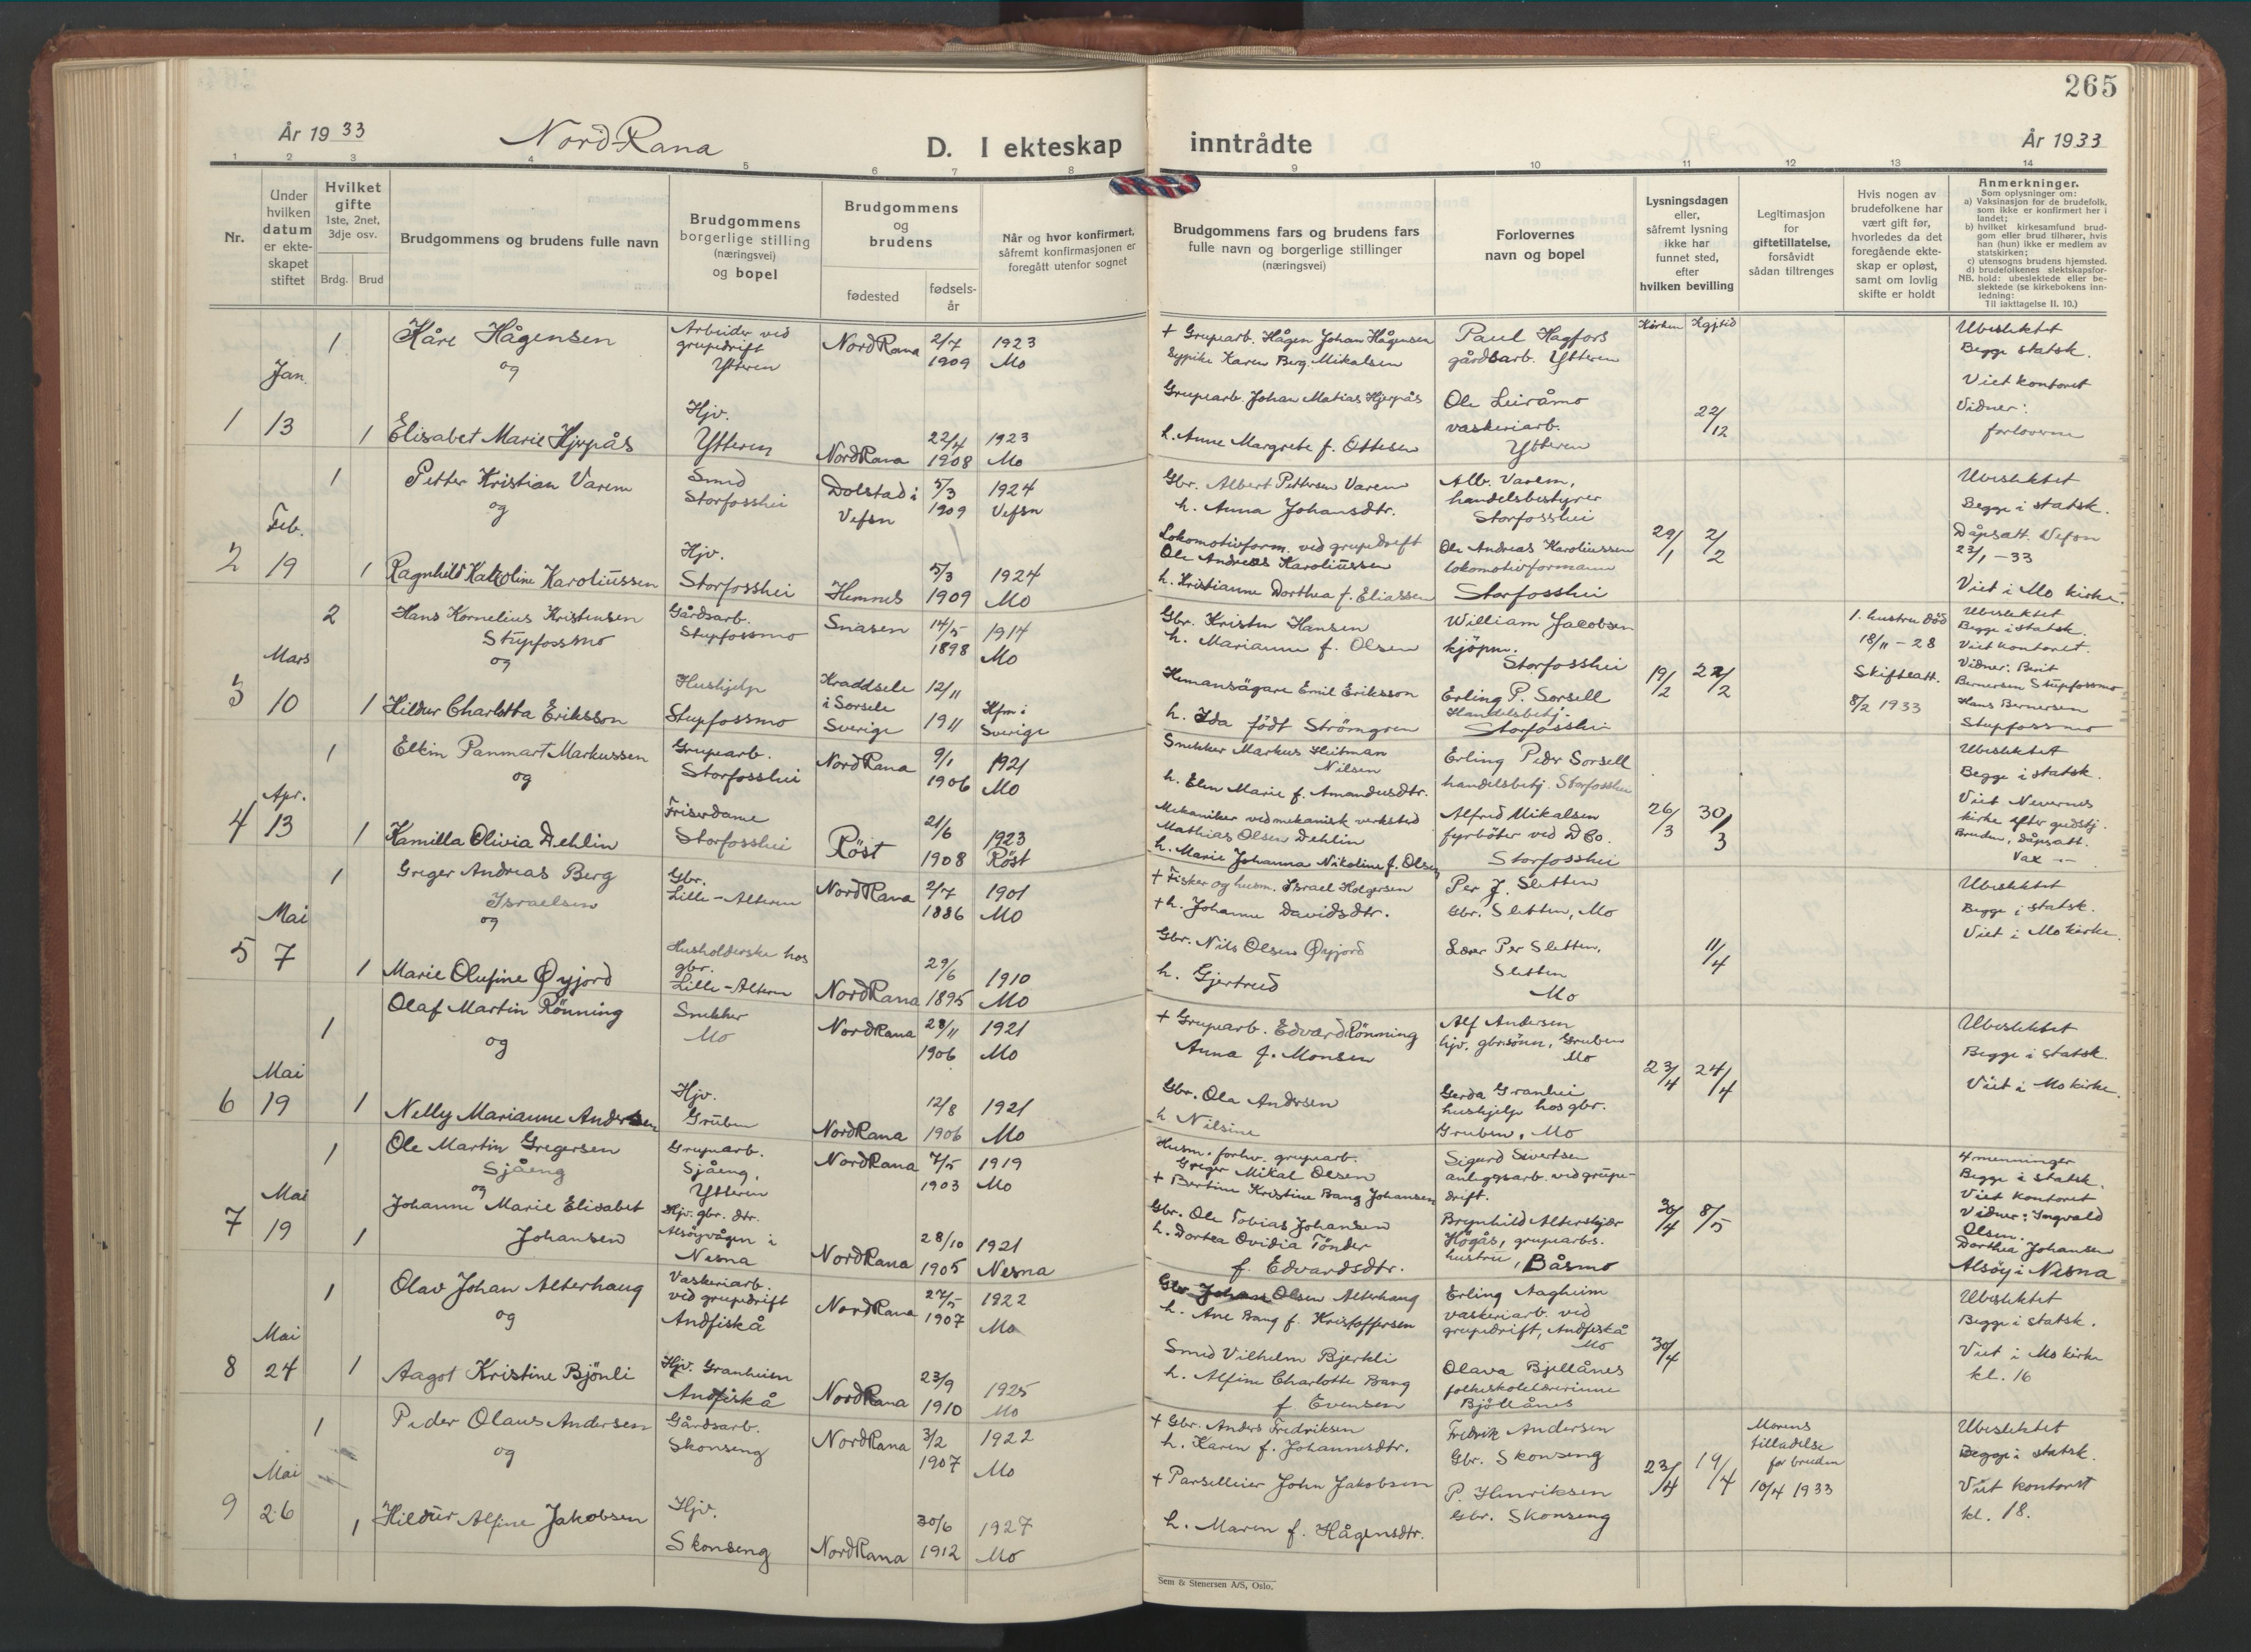 265
År 1933
Nord-Rana
D. I ekteskap inntrådte
År 1933
1 2 3 4 5 6 7 8 9 10 11 12 13 14
Nr.
Under hvilken datum er ekteskapet stiftet
Hvilket gifte 1ste, 2net, 3dje osv.
Brdg. Brud
Brudgommens og brudens fulle navn
Brudgommens borgerlige stilling (næringsvei) og bopel
Brudgommens og brudens
fødested
fødselsår
Når og hvor konfirmert, såfremt konfirmasjonen er foregått utenfor sognet
Brudgommens fars og brudens fars fulle navn og borgerlige stillinger (næringsvei)
Forlovernes navn og bopel
Lysningsdagen eller, såfremt lysning ikke har funnet sted, efter hvilken bevilling
Legitimasjon for giftetillatelse, forsåvidt sådan tiltrenges
Hvis nogen av brudefolkene har vært gift før, hvorledes da det foregående ekteskap er opløst, samt om lovlig skifte er holdt
Anmerkninger.
Som oplysninger om:
a) Vaksinasjon for de brudefolk, som ikke er konfirmert her i landet;
b) hvilket kirkesamfund brudgom eller brud tilhører, hvis han (hun) ikke er medlem av statskirken;
c) utensogns brudens hjemsted.
d) brudefolkenes slektskapsforhold: ubeslektede eller beslektede (se kirkebokens innledning:
NB.
Til iakttagelse II. 10.)
1
Jan. 13
1 Kåre Hågensen
og
1 Elisabet Marie Hjerpås
Arbeider ved
grupedrift
Ytteren
Hjv.
Ytteren
NordRana 2/7 1909
1923 Mo
NordRana 22/4 1908
1923 Mo
+ Grupearb. Hågen Johan Hågensen
Sypike Karen Berg. Mikalsen
Grupearb. Johan Matias Hjerpås
h. Anne Margrete f. Ottesen
Paul Hagfors
gårdsarb. Ytteren
Ole Leiråmo
vaskeriarb.
Ytteren
Kirken Kgjtid
22/12
Ubeslektet
Begge statsk.
Viet kontoret
Vidner:
forloverne
2
Feb. 19
1 Petter Kristian Varem
og
1 Ragnhild Katoline Karoliussen
Smed
Storfosshei
Hjv.
Storfosshei
Dolstad i
Vefsn
5/3 1909
1924 Vefsn
Hemnes 5/3 1909
1924 Mo
Gbr. Albert Pettersen Varem
h. Anna Johansdtr.
Lokomotivform. ved grupedrift
Ole Andreas Karoliussen
h. Kristianne Dorthea f. Eliassen
Alb. Varem,
handelsbestyrer
Storfosshei
Ole Andreas Karoliussen
lokomotivformann
Storfosshei
29/1 2/2
Ubeslektet
Begge i statsk.
Dåpsatt. Vefsn
23/1 - 33
Viet i Mo kirke.
3
Mars 10
2 Hans Kornelius Kristensen
Stupfossmo
og
1 Hildur Charlotta Eriksson
Gårdsarb.
Stupfossmo
Hushjelp
Stupfossmo
Snåsen 14/5 1898
1914 Mo
Kraddsele
i Sorsele
Sverige
12/11 1911
Kfm i
Sverige
Gbr. Kristen Hansen
h. Marianne f. Olsen
Hemansägare Emil Eriksson
h. Ida född Strömgren
William Jacobsen
kjöpm.
Storfosshei
Erling P. Sorsell
Handelsbetj.
Storfosshei
19/2 22/2
1. hustru död
18/11 - 28
Skifteatt.
8/2 1933
Ubeslektet
Begge i statsk.
Viet kontoret.
Vidner: Berit
Bernersen Stupfossmo
Hans Bernersen
Stupfossmo
4
Apr. 13
1 Elkin Panmart Markussen
og
1 Kamilla Olivia Dehlin
Grupearb.
Storfosshei
Friserdame
Storfosshei
NordRana 9/1 1906
1921 Mo
Röst 21/6 1908
1923 Röst
Snekker Markus Heitman
Nilsen
h. Elen Marie f. Amandusdtr.
Mekaniker ved mekanisk verksted
Mathias Olsen Dehlin
h. Marie Johanna Nikoline f. Olsen
Erling Peder Sorsell
handelsbetj. Storfosshei
Alfred Mikalsen
fyrböter ved D Co.
Storfosshei
26/3 30/3
Ubeslektet
Begge i statsk.
Viet Nevernes
kirke efter gudstj.
Bruden, dåpsatt.
Vax --
5
Mai 7
1 Greger Andreas Berg
Israelsen
og
1 Marie Olufine Øyjord
Gbr.
Lille-Alteren
Husholderske hos
gbr.
Lille-Alteren
NordRana 2/7 1886
1901 Mo
NordRana 29/6 1895
1910 Mo
+ Fisker og husm. Israel Holgersen
+ h. Johanne Davidsdtr.
Gbr. Nils Olsen Øyjord
h. Gjertrud
Per J. Sletten
Gbr. Sletten, Mo
Lærer Per Sletten,
Sletten
Mo
11/4
Ubeslektet
Begge i statsk.
Viet i Mo kirke.
6
Mai 19
1 Olaf Martin Rönning
og
1 Nelly Marianne Andersen
Snekker
Mo
Hjv.
Gruben
NordRana 28/11 1906
1921 Mo
NordRana 12/8 1906
1921 Mo
+ Grupearb. Edvard Rönning
Anna f. Monsen
Gbr. Ola Andersen
h Nilsine
Alf Andersen
hjv. gbrsönn, Gruben
Mo
Gerda Granhei
hushjelp hos gbr.
Gruben, Mo
23/4 24/4
Ubeslektet
Begge i statsk.
Viet i Mo kirke.
7
Mai 19
1 Ole Martin Gregersen
Sjåeng
og
1 Johanne Marie Elisabet
Johansen
Grupearb.
Sjåeng,
Ytteren
Hjv. gbr. dtr.
Alsöyvågen i
Nesna
NordRana 7/5 1903
1919 Mo
NordRana 28/10 1905
1921 Nesna
Husm. forhv. grupearb.
Greger Mikal Olsen
+ Bertine Kristine Bang Johansen
Gbr. Ole Tobias Johansen
h. Dortea Ovidia Tönder
f. Edvardsdtr.
Sigurd Sivertsen
anleggsarb. ved grupe-
drift.
Brynhild Alterskjær
Högås, grupearbs.
hustru, Båsmo
30/4 8/5
4 menninger
Begge i statsk.
Viet kontoret
Vidner: Ingvald
Olsen.
Dorthea Johansen
Alsöy i Nesna
8
Mai 24
1 Olav Johan Alterhaug
og
1 Aagot Kristine Bjönli
Vaskeriarb.
ved grupedrift
Andfiskå
Hjv. Granheien
Andfiskå
NordRana 27/5 1907
1922 Mo
NordRana 23/9 1910
1925 Mo
Gbr. Johan Olsen Alterhaug
h. Ane Bang f. Kristoffersen
Smed Vilhelm Bjerkli
h. Alfine Charlotte Bang
f. Evensen
Erling Aagheim
vaskeriarb. ved
grupedrift, Andfiskå
Mo
Olava Bjellånes
folkeskolelærerinne
Bjöllånes
30/4
Ubeslektet
Begge i statsk.
Viet i Mo kirke
kl. 16
9
Mai 26
1 Peder Olaus Andersen
og
1 Hildur Alfine Jakobsen
Gårdsarb.
Skonseng
Hjv.
Skonseng
NordRana 3/2 1907
1922 Mo
NordRana 30/6 1912
1927 Mo
+ Gbr. Anders Fredriksen
h. Karen f. Johannesdtr.
+ Parselleier John Jakobsen
h. Maren f. Hågensdtr.
Fredrik Andersen
Gbr. Skonseng
P. Henriksen
Gbr. Skonseng
23/4 19/4
Morens
tilladelse
for bruden
10/4 1933
Ubeslektet
Begge i statsk.
Viet kontoret
kl. 18.
Sem & Stenersen A/S, Oslo.